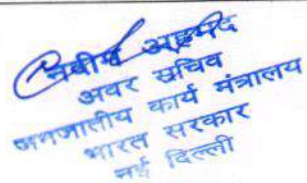 नवीन अहमद
अवर सचिव
जनजातीय कार्य मंत्रालय
भारत सरकार
नई दिल्ली